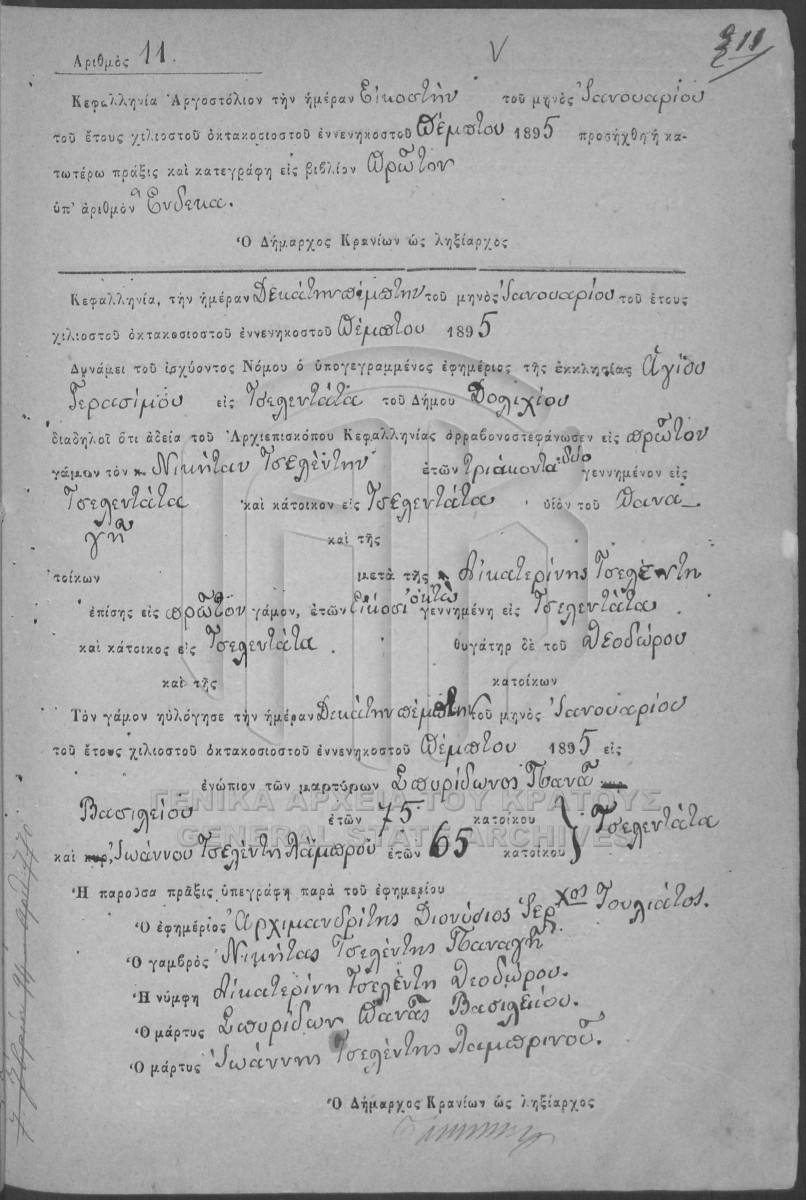 Ἀριθμὸς 11. V 211
Κεφαλληνία Ἀργοστόλιον τὴν ἡμέραν Εἰκοστὴν τοῦ μηνὸς Ἰανουαρίου
τοῦ ἔτους χιλιοστοῦ ὀκτακοσιοστοῦ ἐννενηκοστοῦ Πέμπτου 1895 προσήχθη ἡ κα-
τωτέρω πρᾶξις καὶ κατεγράφη εἰς βιβλίον Πρῶτον
ὑπ' ἀριθμὸν Ἕνδεκα.
Ὁ Δήμαρχος Κρανίων ὡς ληξίαρχος
Κεφαλληνία, τὴν ἡμέραν Δεκάτην πέμπτην τοῦ μηνὸς Ἰανουαρίου τοῦ ἔτους
χιλιοστοῦ ὀκτακοσιοστοῦ ἐννενηκοστοῦ Πέμπτου 1895
Δυνάμει τοῦ ἰσχύοντος Νόμου ὁ ὑπογεγραμμένος ἐφημέριος τῆς ἐκκλησίας Ἁγίου
Γερασίμου εἰς Τσελεντάτα τοῦ Δήμου Δολιχίου
διαδηλοῖ ὅτι ἀδεία τοῦ Ἀρχιεπισκόπου Κεφαλληνίας ἀρραβονοστεφάνωσεν εἰς πρῶτον
γάμον τὸν Νικήταν Τσελέντην ἐτῶν τριάκοντα δύο γεννημένον εἰς
Τσελεντάτα καὶ κάτοικον εἰς Τσελεντάτα υἱὸν τοῦ Πανα
γῆ καὶ τῆς
τοίκων μετὰ τῆς Αἰκατερίνης Τσελέντη
ἐπίσης εἰς πρῶτον γάμον, ἐτῶν Εἰκοσι ὀκτὼ γεννημένη εἰς Τσελεντάτα
καὶ κάτοικος εἰς Τσελεντάτα. θυγάτηρ δὲ τοῦ Θεοδώρου
καὶ τῆς κατοίκων
Τὸν γάμον ηὐλόγησε τὴν ἡμέραν Δεκάτην πέμπτην τοῦ μηνὸς Ἰανουαρίου
τοῦ ἔτους χιλιοστοῦ ὀκτακοσιοστοῦ ἐννενηκοστοῦ Πέμπτου 1895 εἰς
ἐνώπιον τῶν μαρτύρων Σπυρίδωνος Πανᾶ
Βασιλείου ἐτῶν 75 κατοίκου
καὶ Ἰωάννου Τσελέντη Λάμπρου ἐτῶν 65 κατοίκου } Τσελεντάτα
ΓΕΝΙΚΑ ΑΡΧΕΙΑ ΤΟΥ ΚΡΑΤΟΥΣ
GENERAL STATE ARCHIVES
Ἡ παροῦσα πρᾶξις ὑπεγράφη παρὰ τοῦ ἐφημερίου
Ὁ ἐφημέριος Ἀρχιμανδρίτης Διονύσιος Ἱερχος Τουλιάτος.
Ὁ γαμβρὸς Νικήτας Τσελέντης Παναγῆ
Ἡ νύμφη Αἰκατερίνη Τσελέντη Θεοδώρου.
Ὁ μάρτυς Σπυρίδων Πανᾶς Βασιλείου.
Ὁ μάρτυς Ἰωάννης Τσελέντης Λαμπρινοῦ.
Ὁ Δήμαρχος Κρανίων ὡς ληξίαρχος